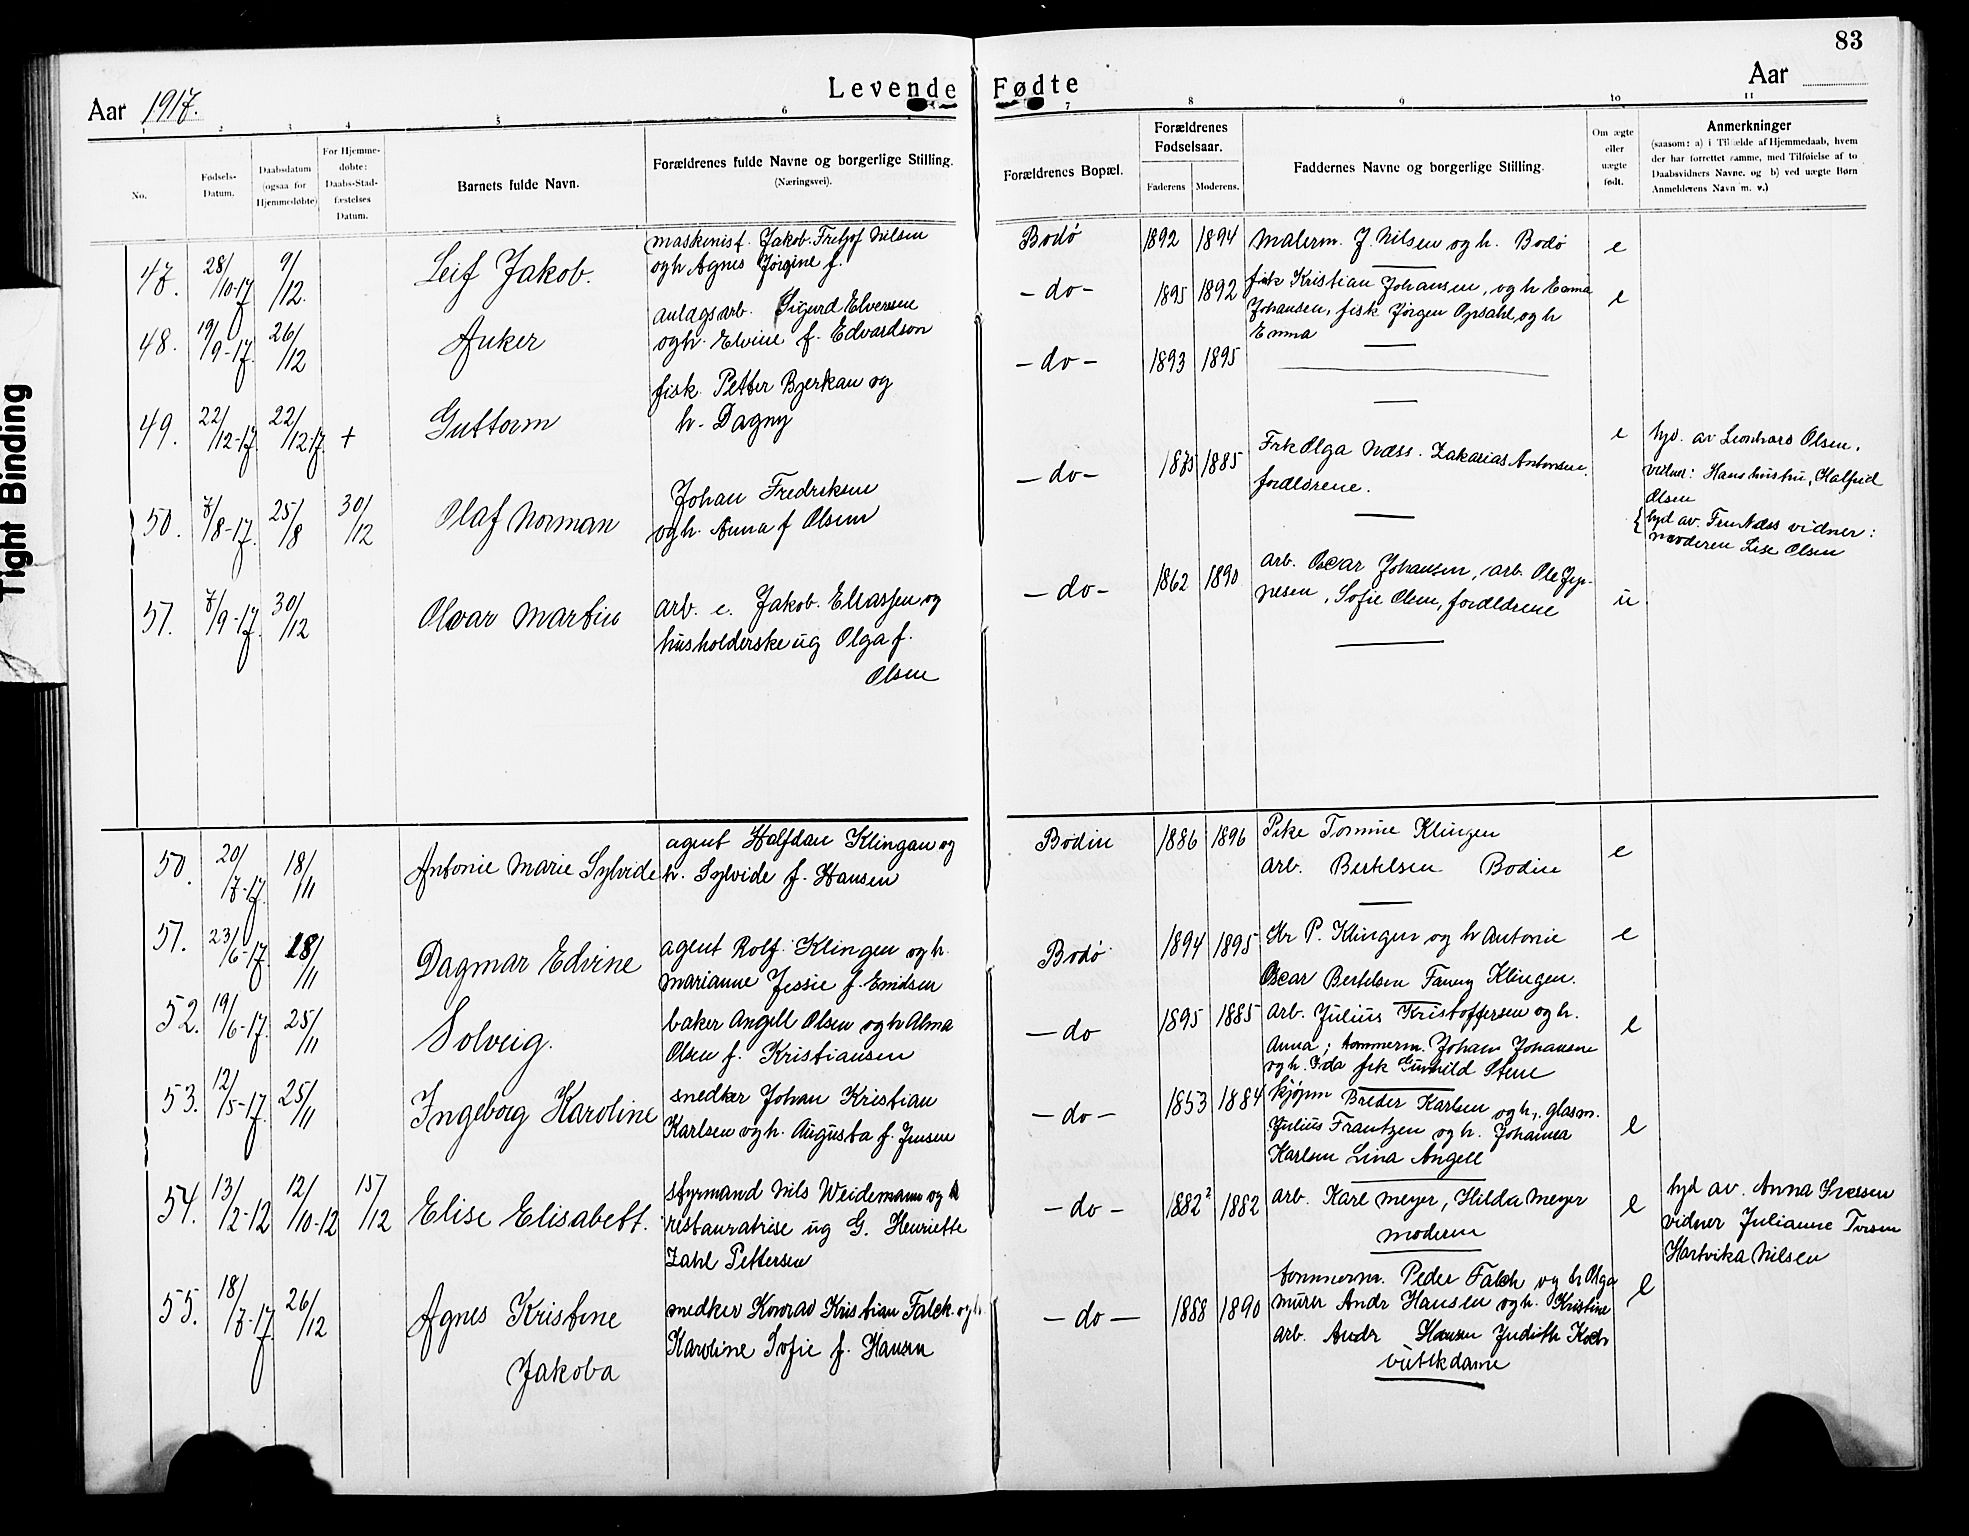 83
Levende Fødte
Aar 1917.
Aar
1 2 3 4 5 6 7 8 9 10 11
No.
Fødsels-
Datum.
Daabsdatum
(ogsaa for
Hjemmedøbte)
For Hjemme-
døbte:
Daabs-Stad-
fæstelses
Datum.
Barnets fulde Navn.
Forældrenes fulde Navne og borgerlige Stilling.
(Næringsvei).
Forældrenes Bopæl.
Forældrenes
Fødselsaar.
Faderens Moderens.
Faddernes Navne og borgerlige Stilling.
Om ægte
eller
uægte
født.
Anmerkninger
(saasom: a) i Tilfælde af Hjemmedaab, hvem
der har forrettet samme, med Tilføielse af to
Daabsvidners Navne, og b) ved uægte Børn
Anmelderens Navn m. v.)
47. 28/10-17 9/12. Leif Jakob.
maskinist. Jakob Fretjof Nilsen
og h Agnes Jörgine f.
Bodö 1892 1894 malerm. J. Nilsen og h. Bodö e
48. 19/9-17. 26/12 Anker
anlagsarb. Sigurd Elversen
og h. Elvine f. Edvardson
-do- 1895 1892
fisk Kristian Johansen, og h Emma
Johansen, fisk Jörgen Opsahl, og h
Emma
e
49. 22/12-17. 22/12-17. + Guttorm
fisk. Petter Bjerkan og
h. Dagny
-do- 1893 1895
e
hjd. av Leonhard Olsen.
vidner: Hans hustru, Halfrid
Olsen
50. 7/8-17. 25/8 30/12 Olaf Norman
Johan Fredriksen
og h. Anna f Olsen
-do- 1875 1885
Frk Olga Næss. Zakarias Antonsen.
forældrene.
hjd av. Fru Næss vidner:
moderen Lise Olsen
51. 7/9-17. 30/12 Olvar Martin
arb. e. Jakob. Eliassen og
husholderske ug Olga f.
Olsen
-do- 1862 1890
arb. Oscar Johansen, arb. Ole Jen-
nesen, Sofie Olsen, forældrene
u.
50. 20/7-17. 18/11 Antonie Marie Sylvide
agent Halfdan Klingan og
h. Sylvide f. Hansen
Bodin 1886 1896
Pike Tomine Klingen
arb. Bertelsen Bodin
e
51. 23/6-17. 18/11 Dagmar Edvine
agent Rolf Klingen og h.
Marianne Jessie f. Emilsen
Bodö 1894 1895
Hr P. Klingen og h Antonie
Oscar Bertelsen Fanny Klingen.
e
52. 19/6-17. 25/11 Solveig.
baker Angell Olsen og h Alma
Olsen f. Kristiansen
-do 1895 1885
arb. Julius Kristoffersen og h.
Anna; tommerm. Johan Johansen
og h. Ida frk Gunhild Stene
e
53. 12/5-17. 25/11 Ingeborg Karoline
snedker Johan Kristian
Karlsen og h. Augusta f. Jensen
-do- 1853 1884
kjöpm Breder Karlsen og h., glasm.
Julius Frantzen og h. Johanna
Karlsen Lina Angell
e
54. 13/2-12 12/10-12 15/12 Elise Elisabett.
styrmand Nils Weidemann og
restauratrise ug G. Henriette
Zahl Pettersen
-do- 1882? 1882
arb. Karl Meyer, Hilda Meyer
moderen
e
hjd av. Anna Iversen
vidner Julianne Iversen
Hartvika Nilsen
55. 18/7-17. 26/12 Agnes Kristine
Jakoba
snedker Konrad Kristian Falck. og h.
Karoline Sofie f. Hansen
-do- 1888 1890
tommerm. Peder Falch og h Olga
murer Andr Hansen og h. Kristine
arb. Andr Hansen Judith Koch
butikdame
e
Tight Binding